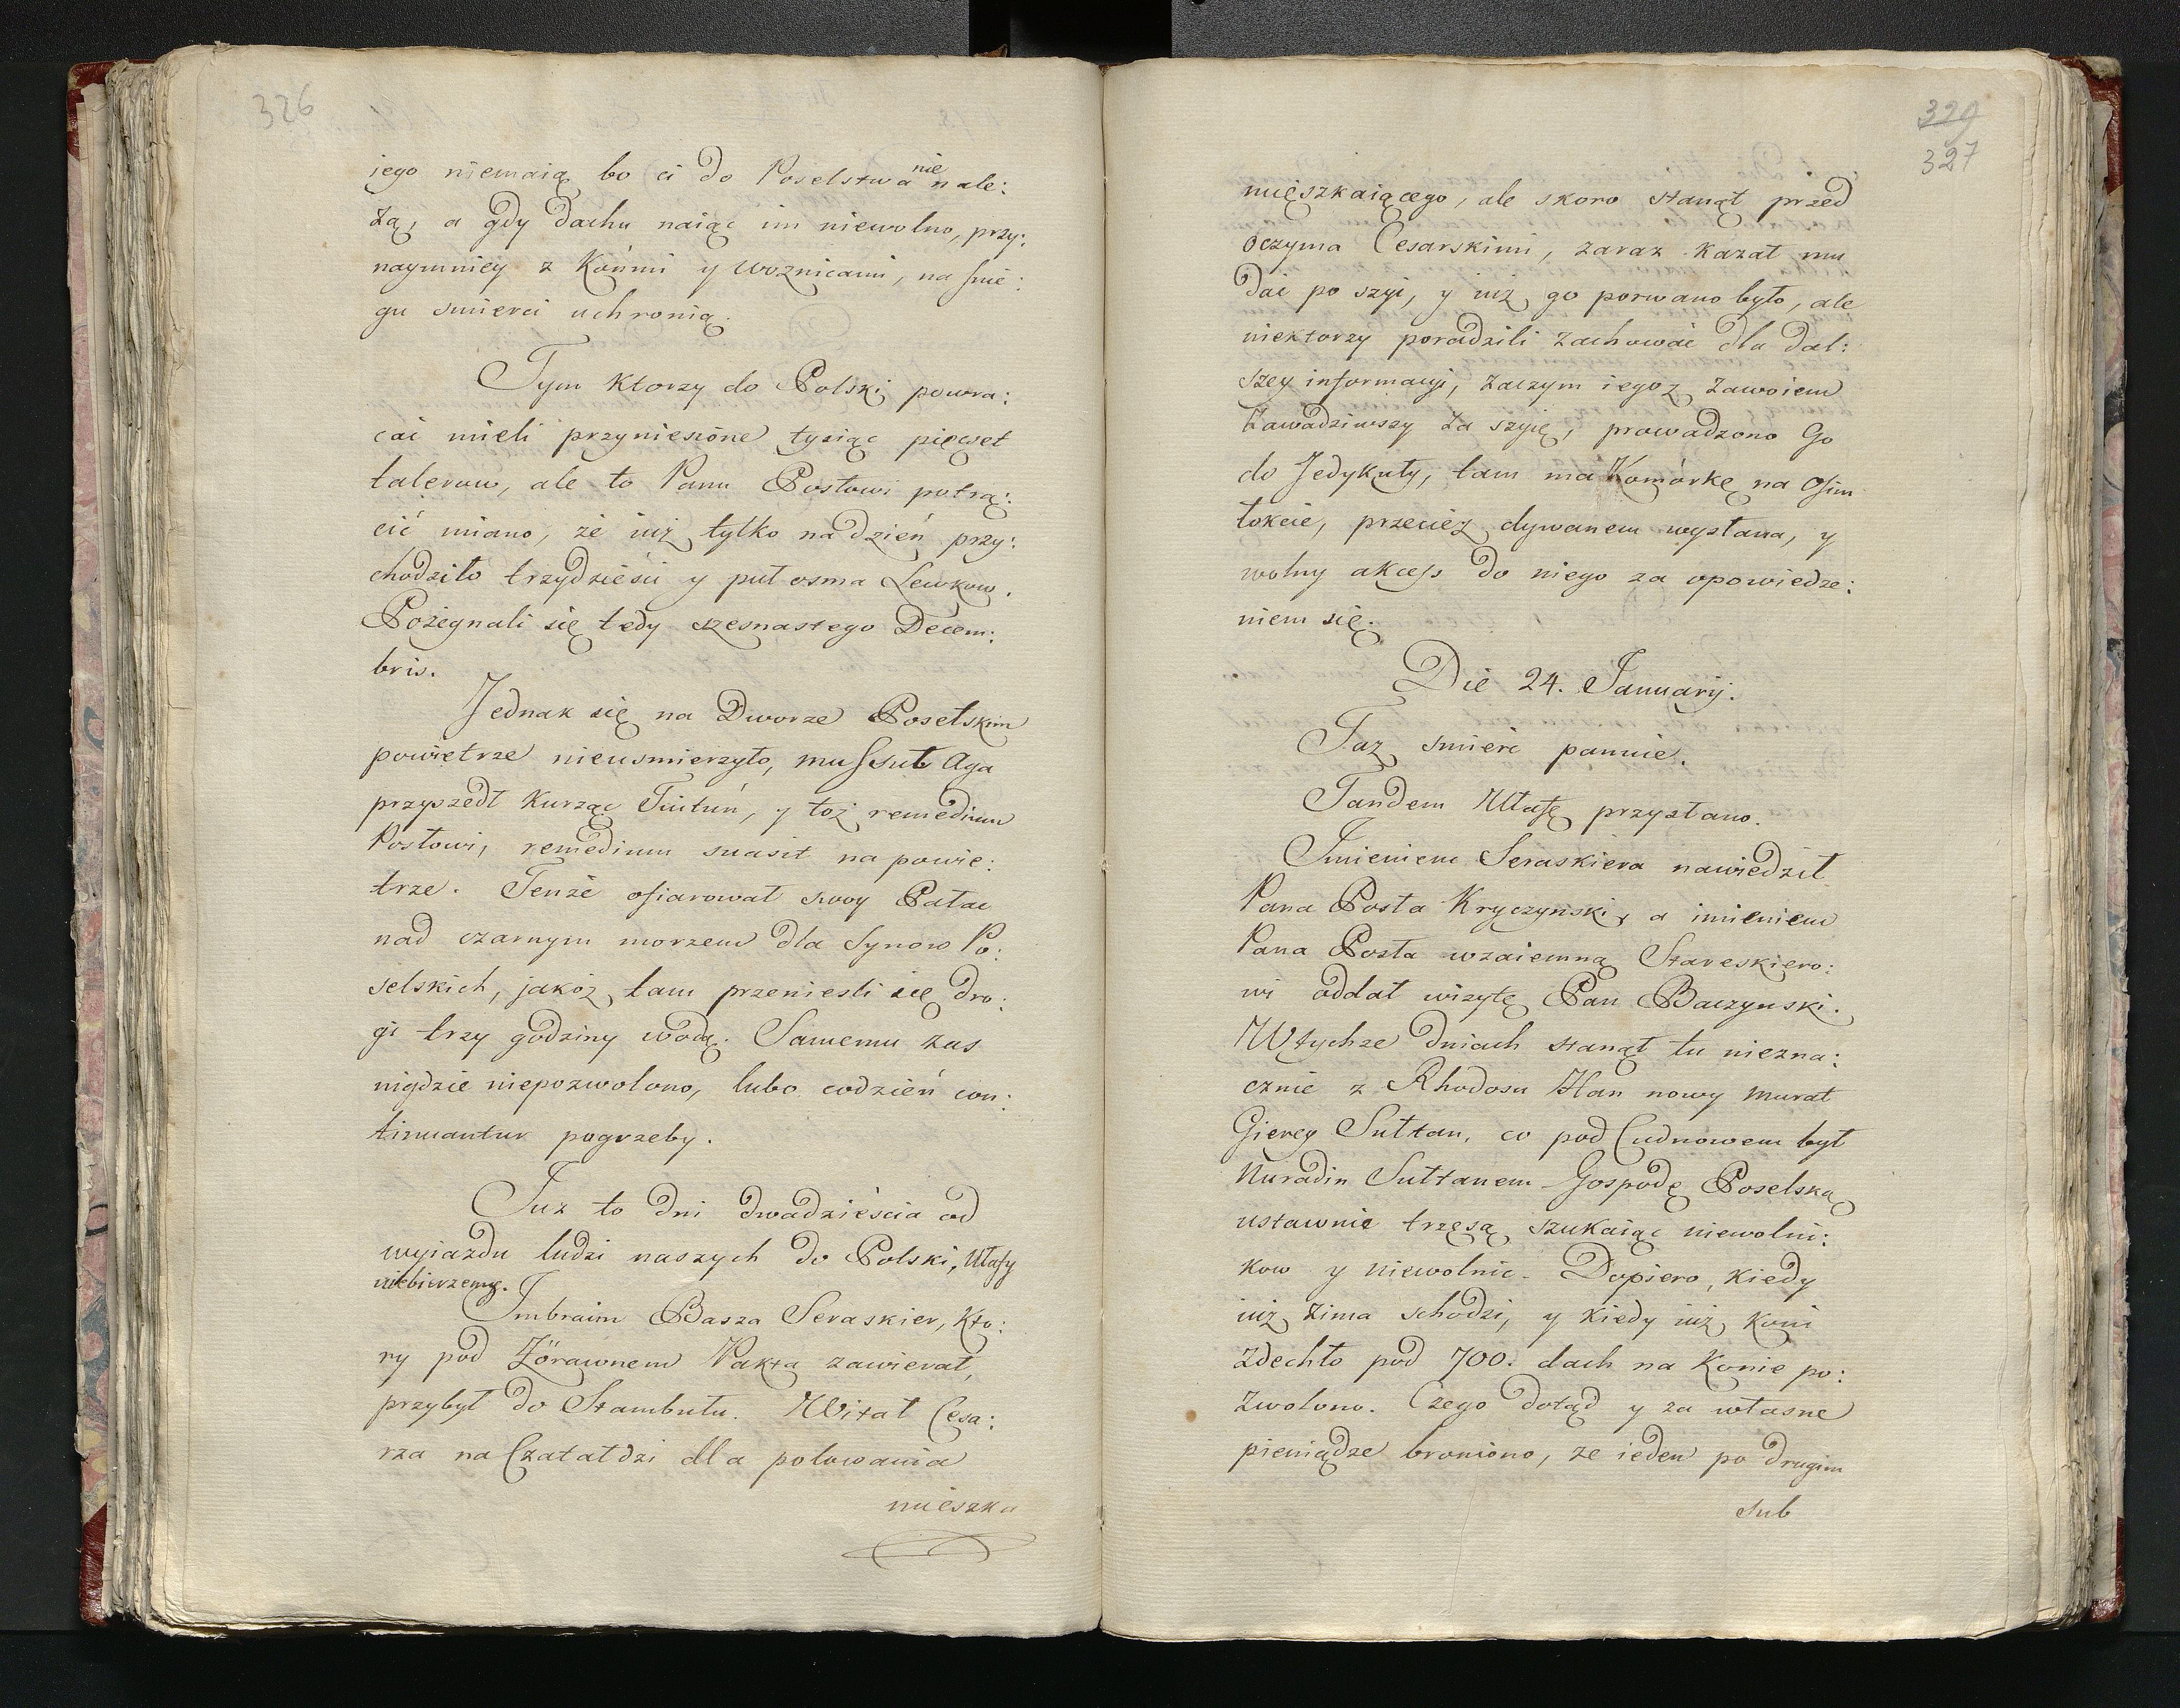 326
iego niemaią bo ci do Poselstwa nie nale:
żą, a gdy dachu naiąc im niewolno, przy:
naymniey z Końmi y woznicami, na snie:
gu smierci uchronią.
Tym ktorzy do Polski powra:
cai mieli przyniesione tysiąc pięcset
talerow, ale to Panu Posłowi potrą:
cić miano, że iuż tylko na dzień przy:
chodziło trzydziesci y puł osma Lewkow.
Pożegnali się tedy szesnastego Decem:
bris.
Jednak się na Dworze Poselskim
powietrze nieusmierzyło, mussul Aga
przyszedł kurząc Tiutiuń, y toż remedium
Posłowi, remedium suasit na powie:
trze. Tenże ofiarował swoy Pałac
nad czarnym morzem dla Synow Po:
selskich, jakoż tam przeniesli się dro:
gi trzy godziny wodą. Samemu zas
nigdzie niepozwolono, lubo codzień con:
tinuantur pogrzeby.
Juz to dni dwadzieścia od
wyiazdu ludzi naszych do Polski, Ułafy
niebierzemy.
Jmbraim Basza Seraskier, Kto:
ry pod Żörawnem Pakta zawierał,
przybył do Stambułu. Witał Cesa:
rza na Czataldzi dla polowania
mieszka
329
327
mięszkaiącego, ale skoro stanął przed
oczyma Cesarskimi, zaraz kazał mu
dać po szyi, y iuż go porwano było, ale
niektorzy poradzili zachować dla dal:
szey informacyi, zaczym iegoż zawoiem
zawadziwszy za szyię, prowadzono Go
do Jedykuły, tam ma Komórkę na osim
łokcie, przecież dywanem wysłana, y
wolny akcess do niego za opowiedze:
niem się.
Die 24. Januarij.
Taż smierć panuie.
Tandem Ułafę przysłano.
Jmieniem Seraskiera nawiedził
Pana Posła Kryczynski, a imieniem
Pana Posła wzaiemną Stareskiero:
wi oddał wizytę Pan Baczynski.
Wtychże dniach stanął tu niezna:
cznie z Rhodosu Han nowy Murat
Gierey Sułtan, co pod Cudnowem był
Nuradin Sułtanem Gospodę Poselską
ustawnie trzęsą szukaiąc niewolni:
kow y niewolnic. Dopiero, kiedy
iuż zima schodzi, y kiedy iuż koni
zdechło pod 700. dach na konie po:
zwolono. Czego dotąd y za własne
pieniądze broniono, że ieden po drugim
sub